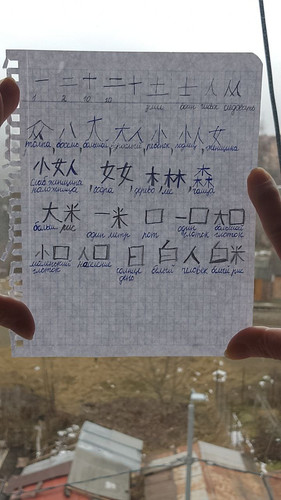 一 二 十 二十 土 士 人 从
1 2 10 20
众 八 大 大人 小 小人 女
толпа, восемь, большой, женщина
小女人 奻 木 林 森
ссора, дерево, лес, чаща
大米 一米 口 一口 大口
большой рис один метр рот один глоток большой глоток
小口 人口 日 白 白人 白米
маленький глоток население солнце день белый человек белый рис